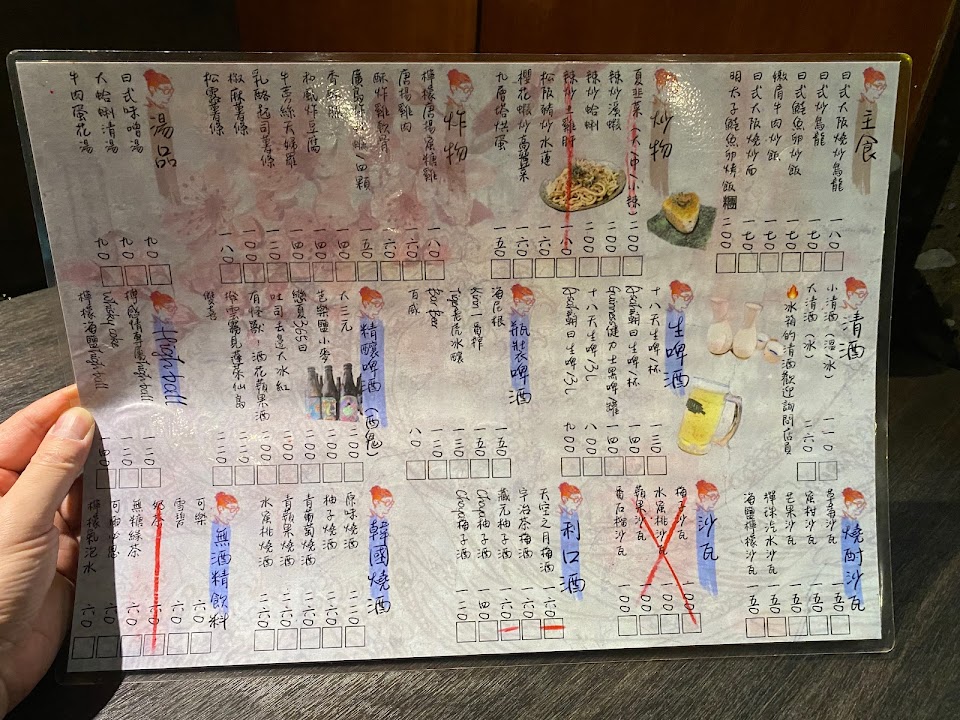 主食
日式大阪燒炒烏龍 一八〇
日式炒烏龍 一七〇
日式鮭魚卵炒飯 一七〇
嫩肩牛肉炒飯 一七〇
日式大阪燒炒面 一七〇
明太子鮭魚卵烤飯糰 二〇〇
炒物
夏韭菜(大/中/小辣) 二〇〇
辣炒溪蝦 二〇〇
辣炒蛤蜊 二〇〇
辣炒土雞肝 一八〇
松阪豬炒水蓮 一六〇
櫻花蝦炒高麗菜 一六〇
九層塔烘蛋 一五〇
炸物
檸檬唐揚蜜糖雞 一八〇
唐揚雞肉 一六〇
酥炸雞軟骨 一六〇
/四顆 一五〇
一四〇
和風炸豆腐 一四〇
牛蒡絲天婦羅 一二〇
乳酪起司薯條 一二〇
椒麻薯條 一〇〇
松露薯條 一八〇
湯品
日式味噌湯 九〇
大蛤蜊清湯 九〇
牛肉蛋花湯 九〇
清酒
小清酒(溫/冰) 一一〇
大清酒(溫/冰) 二六〇
冰箱的清酒歡迎詢問店員
生啤酒
十八天生啤/杯 一三〇
Asahi朝日生啤/杯 一五〇
Guinness健力士黑啤/罐 一四〇
十八天生啤/3L 八〇〇
Asahi朝日生啤/3L 九〇〇
瓶裝啤酒
海尼根 一五〇
Kirin一番搾 一五〇
Tiger虎冰釀 一三〇
Bar Beer 一二〇
百威 八〇
精釀啤酒(酉鬼)
大三元 二〇〇
芭樂鹽小麥 二〇〇
戀夏365日 二〇〇
吐司去邊大冰紅 二〇〇
有怪獸!酒花蘋果酒 二〇〇
撥雲霧見蓬萊仙島 二二〇
雙喜 二二〇
Highball
Highball 一二〇
Whisky coke 一二〇
檸檬海鹽Highball 一四〇
燒酎沙瓦
草莓沙瓦 一五〇
蜜柑沙瓦 一五〇
芒果沙瓦 一五〇
彈珠汽水沙瓦 一五〇
海鹽檸檬沙瓦 一五〇
沙瓦
梅子沙瓦 一〇〇
水蜜桃沙瓦 一〇〇
蘋果沙瓦 一〇〇
香石榴沙瓦 一〇〇
利口酒
天空之月梅酒 一六〇
宇治茶梅酒 一六〇
藏元柚子酒 一六〇
Choya柚子酒 一四〇
Choya梅子酒 一二〇
韓國燒酒
原味燒酒 二二〇
柚子燒酒 二六〇
青葡萄燒酒 二六〇
青蘋果燒酒 二六〇
水蜜桃燒酒 二六〇
無酒精飲料
可樂 六〇
雪碧 六〇
奶茶 六〇
無糖綠茶 六〇
可爾必思 六〇
檸檬氣泡水 六〇